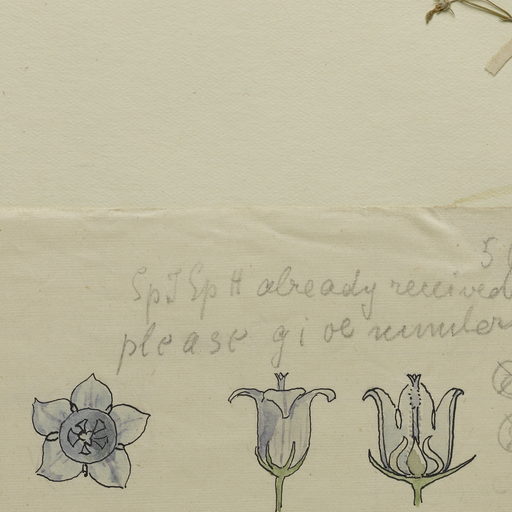 5
SpT Sp H already received
please give number